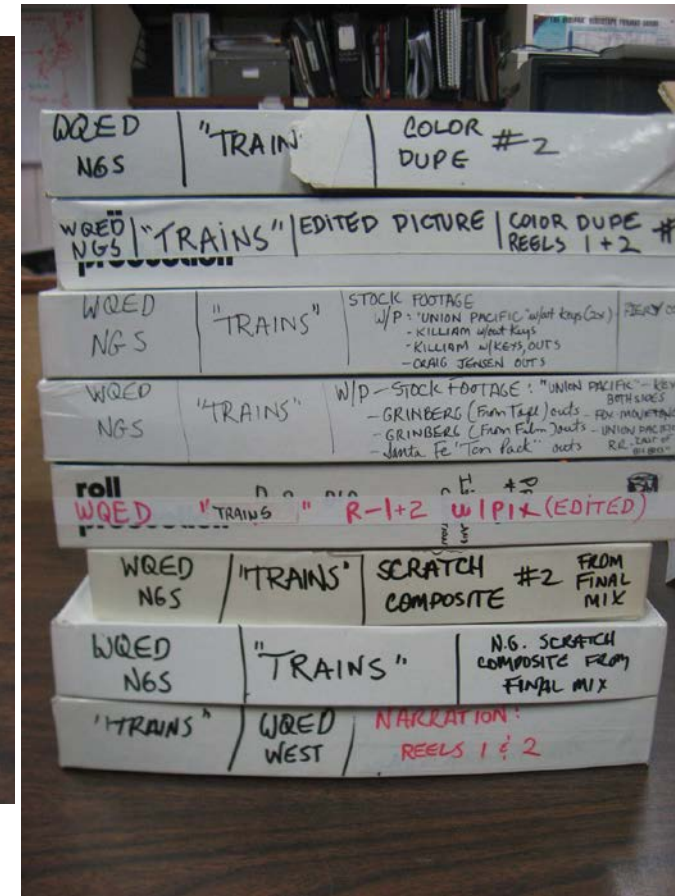 WQED NGS | "TRAIN | COLOR DUPE #2
WQED NGS | "TRAINS" | EDITED PICTURE | COLOR DUPE REELS 1+2 #
WQED NGS
"TRAINS"
STOCK FOOTAGE
W/P: "UNION PACIFIC" w/out keys (2x)
- KILLIAM w/out keys
- KILLIAM w/KEYS, OUTS
- CRAIG JENSEN OUTS
WQED NGS
"TRAINS"
W/P - STOCK FOOTAGE: "UNION PACIFIC" - KEY BOTH SIDES
- GRINBERG (From Tape) outs - FOX MOVIETONE
- GRINBERG (From Film) outs - UNION PACIFIC
- Santa Fe "Ton Pack" outs R.R.
roll
WQED "TRAINS" R-1+2 W/PIX (EDITED)
WQED NGS / "TRAINS" | SCRATCH COMPOSITE #2 FROM FINAL MIX
WQED NGS / "TRAINS" | N.G. SCRATCH COMPOSITE FROM FINAL MIX
"TRAINS" / WQED WEST / NARRATION: REELS 1 & 2